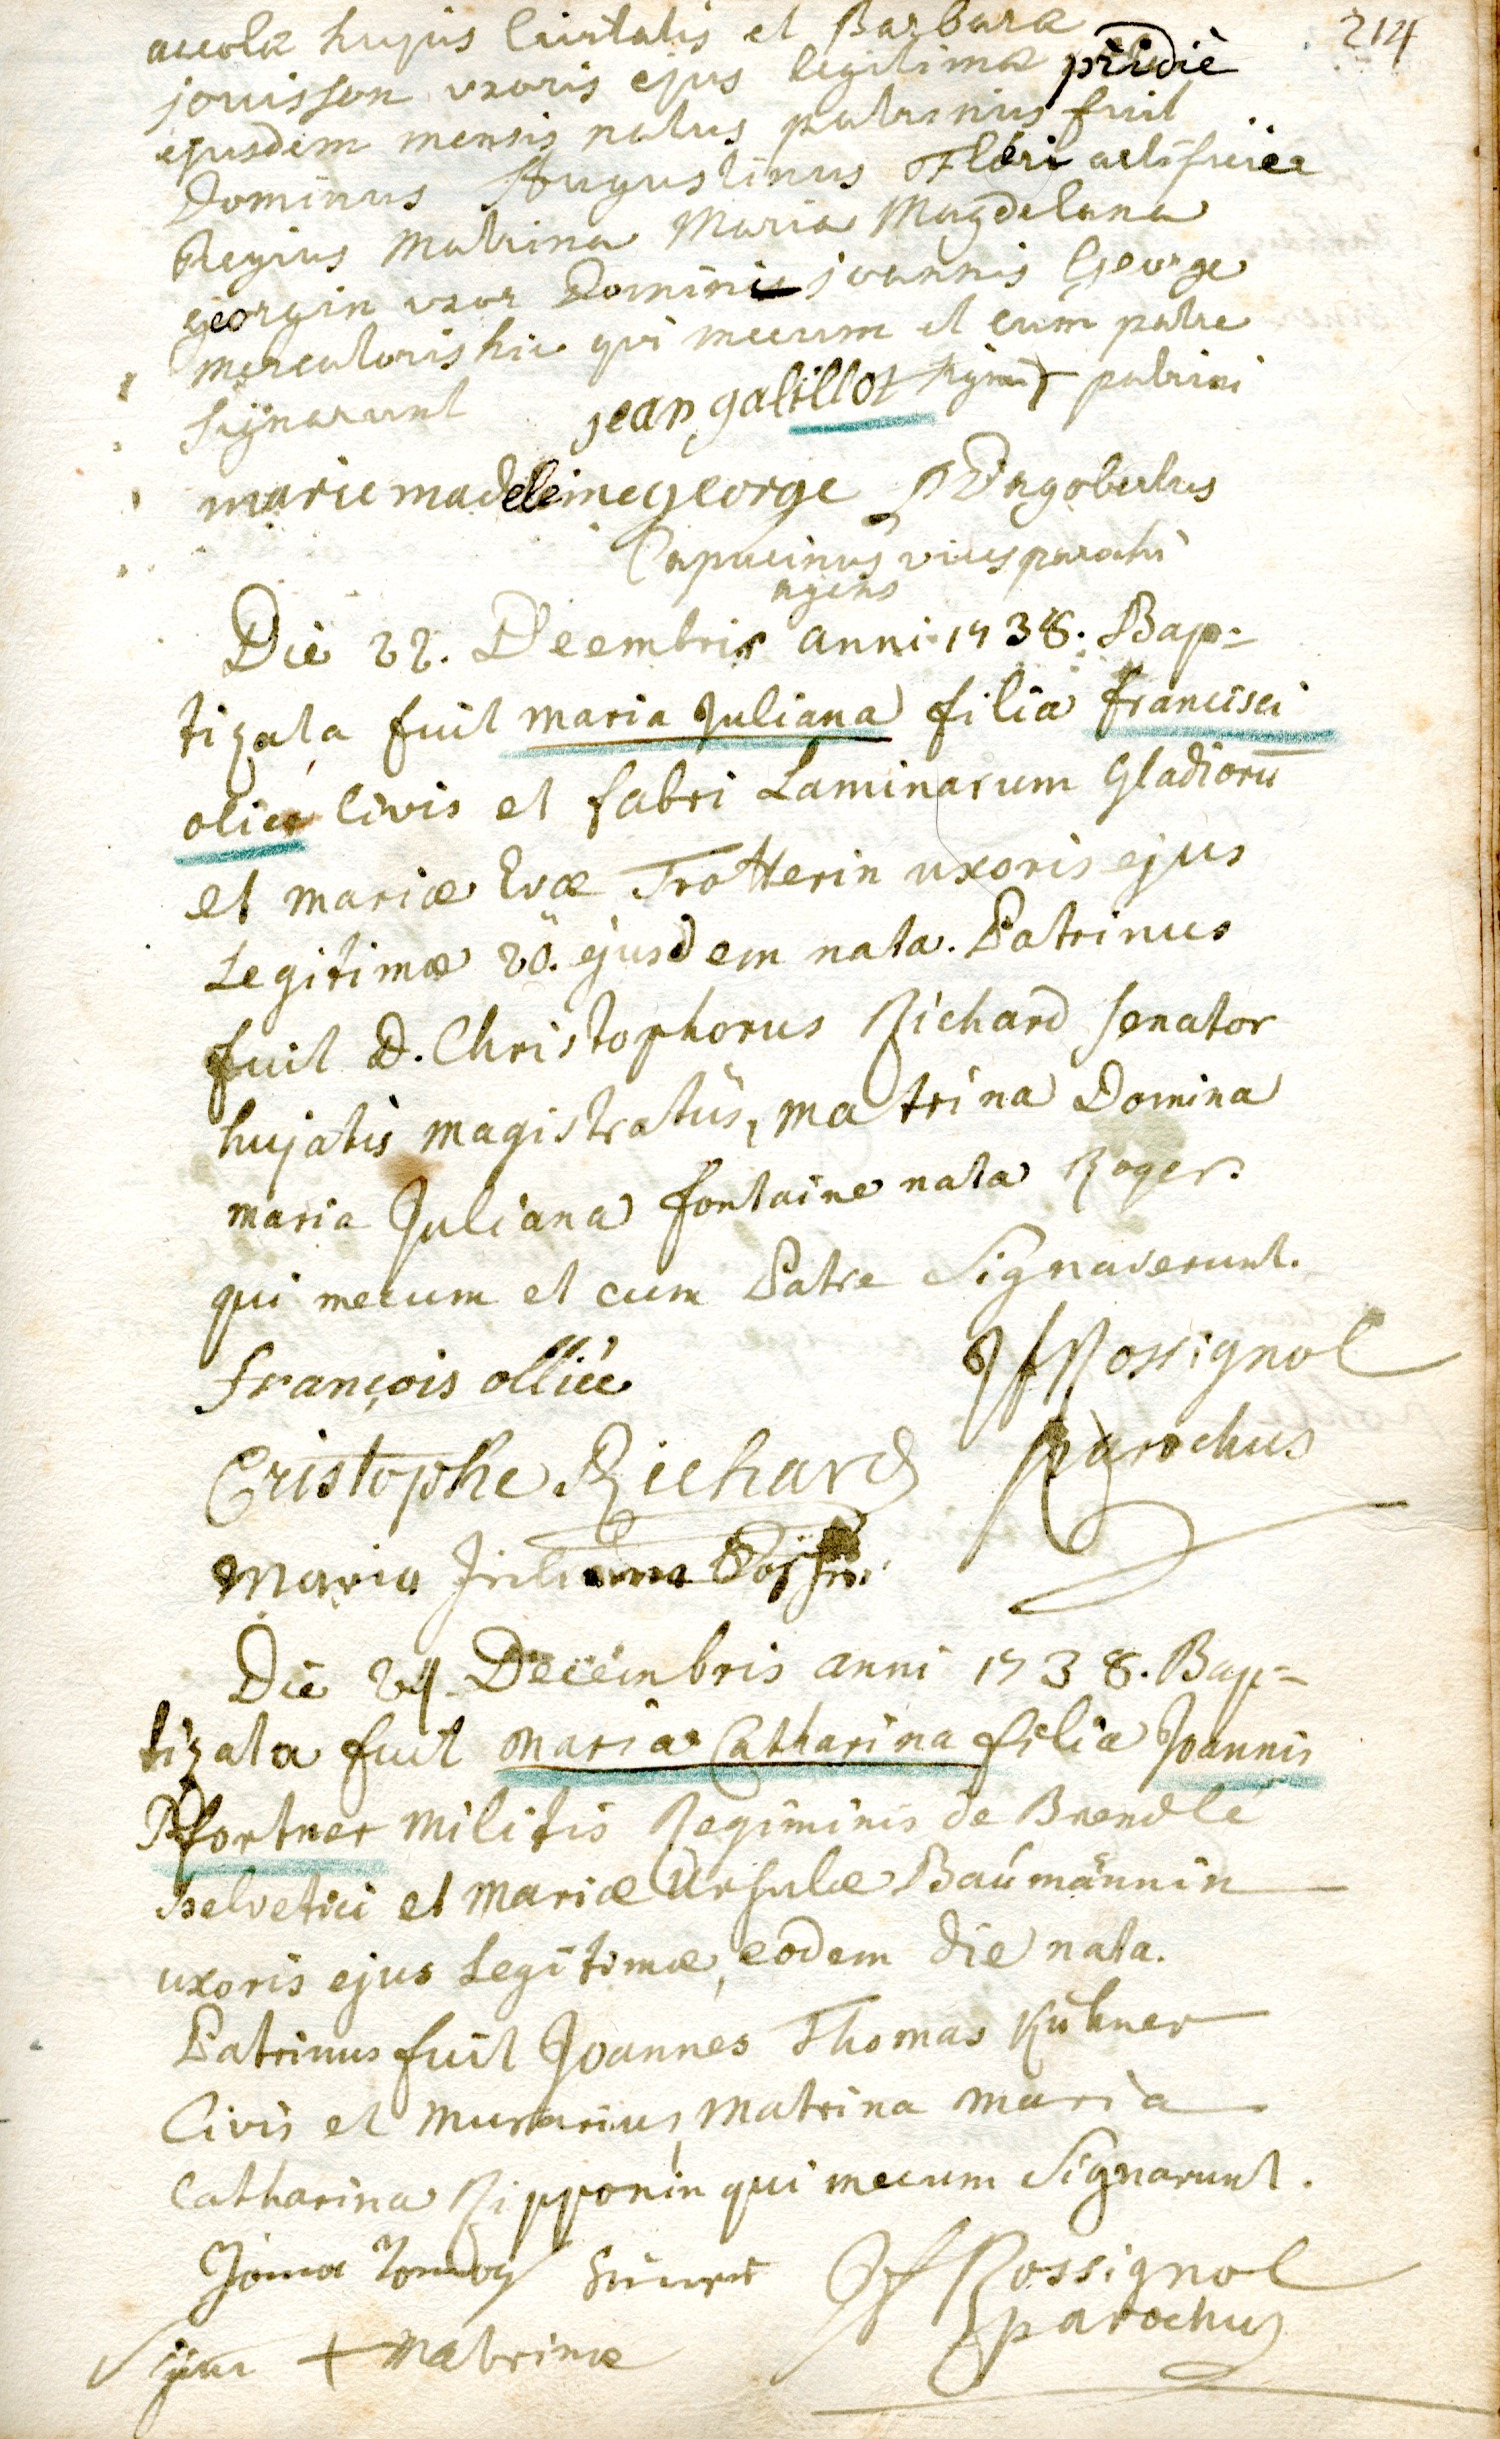 214
accolæ hujus Civitatis et Barbaræ
jouisson uxoris ejus legitimæ pridiè
ejusdem mensis natus patrinus fuit
Dominus Augustinus artifices
Regius Matrina Maria Magdelana
georgin uxor Domini joannis George
mercatoris hic qui mecum et cum patre
signarunt jean galillot signum + patrini
marie madeleine george p Engobertus
Capucinus vices parochi
agens
Die 22. Deembris anni 1738. Bap=
tizata fuit maria Juliana filia francisci
olier Civis et fabri Laminarum Gladiorū
et mariæ Evæ Trotterin uxoris ejus
Legitimæ 20. ejusdem nata. Patrinus
fuit D. Christophorus Richard Senator
hujatis magistratûs, matrina Domina
maria Juliana fontaine nata Roger.
qui mecum et cum Patre Signaverunt.
françois olliee JfRossignol
Cristophe Richard Parochus
Maria
Die 24 Decembris anni 1738. Bap=
tizata fuit maria Catharina filia Joannis
Pfortner militis Regiminis de Brendlé
helvetici et mariæ Ursulæ Baumännin
uxoris ejus Legitimæ, eodem die nata.
Patrinus fuit Joannes Thomas Kühner
Civis et Murarius, Matrina maria
Catharina Ripponin qui mecum Signarunt.
Jf Rossignol
parochus
signum + matrinæ